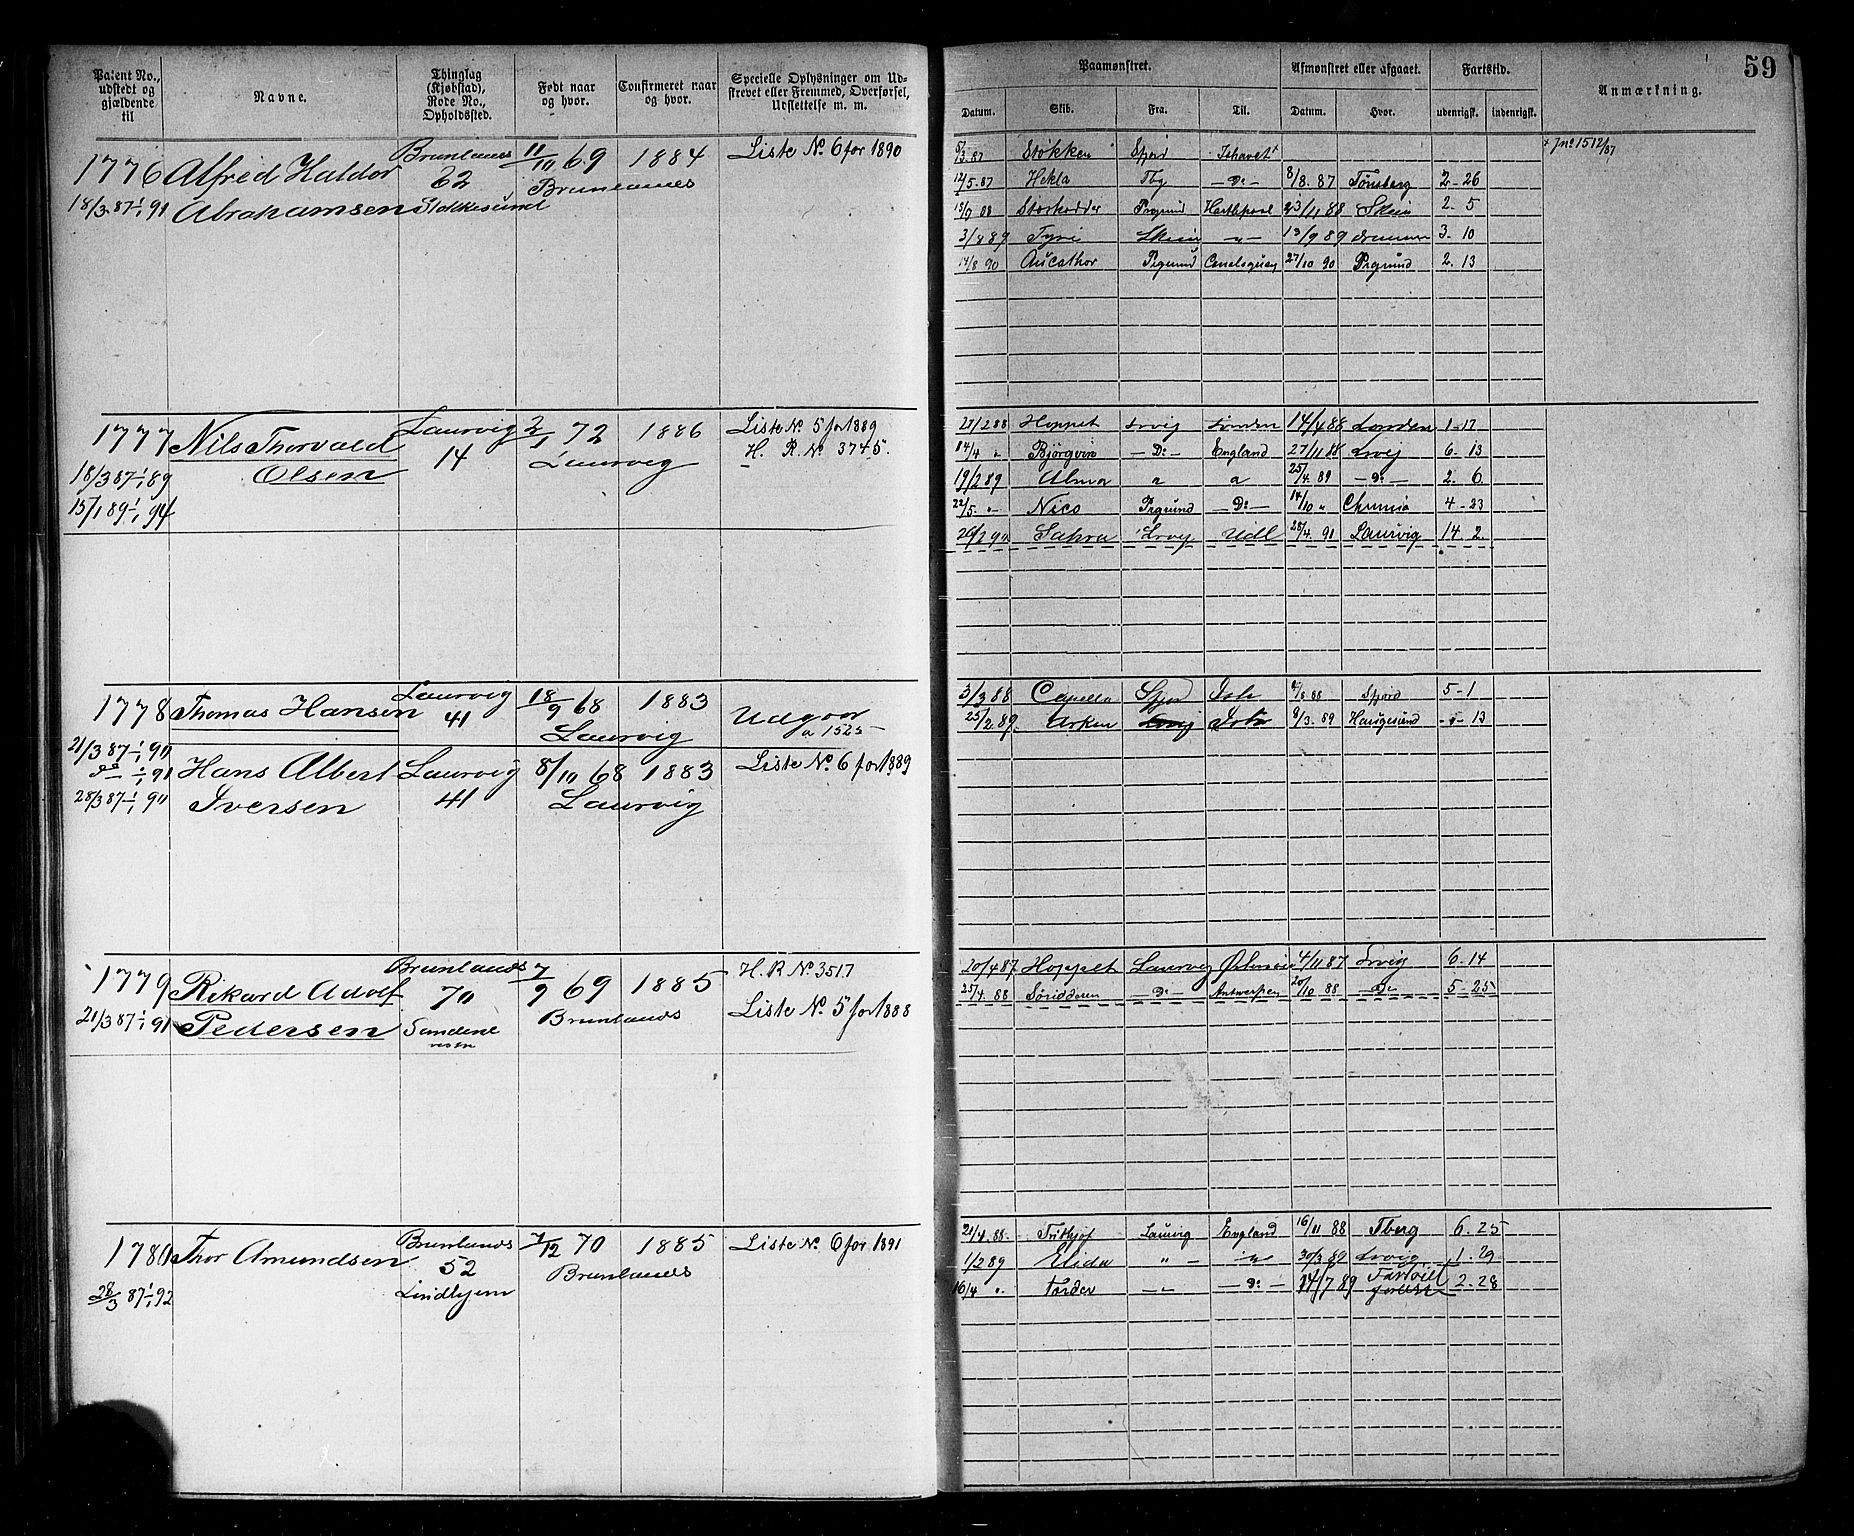 Patent No., udstedt og gjældende til
Navne.
Thinglag (Kjøbstad), Rode No., Opholdssted.
Født naar og hvor.
Confirmeret naar og hvor.
Specielle Oplysninger om Udstrevet eller Fremmed, Overførsel, Udslettelse m. m.
Paamønstret.
Afmønstret eller afgaaet.
Fartstid.
Anmærkning.
59
Datum. Skib. Fra. Til. Datum. Hvor. udenrigsk. indenrigsk.
1776 Alfred Haldor Brunlanes 11/10 69 1884 Liste No. 6 for 1890
62 Brunlanes
18/3 87-1/1 91 Abrahamsen Stokkesund
8/3.87 Stökken Sfjord Ishavet + Jno 1512/87
12/5.87 Hekla Tbg — Do — 8/8.87 Tönsberg 2-26
Storkodder Prgrund Hartlepool 23/11 88 Skien 2. 5
3/8 89 Tyri Skien — " — 13/9 89 Drammen 3. 10
14/8 90 Aucathor Prgrund 27/10 90 Prgrund 2. 13
1777 Nils Thorvald Laurvig 2/1 72 1886 Liste No. 5 for 1889
14 Laurvig H. R. No. 3745.
18/3 87-1/1 89 Olsen
15/1 89-1/1 94
27/2 88 Hoppet Lrvig London 14/4 88 London 1-17
14/4 " Björgvin — Do — England 27/11 88 Lrvig 6. 13
19/2 89 Alma " " 25/4. 89 — Do — 2. 6
22/5. " Nico Prgrund — Do — 14/10 " Chrania 4-23
Sahra Lrvig Udl 28/4. 91 Laurvig 14. 2.
1778 Thomas Hansen Laurvig 18/9 68 1883
41 Laurvig Udgaar
a 1525
21/3 87-1/1 90
Do — 1/1 91 Hans Albert Laurvig 8/10 68 1883 Liste No. 6 for 1889
28/3 87-1/1 90 Iversen 41 Laurvig
3/3 88 Capella Sfjord Ish /8 88 Sfjord 5-1
25/2.89. Arken Lrvig Ish 9/3. 89 Haugesund - " - 13
1779 Rikard Adolf Brunlanes 7/9 69 1885 H. R No. 3517
70 Brunlanes Liste No. 5 for 1888
21/3 87-1/1 91 Pedersen Sandene
20/4 87 Hoppet Laurvig 4/11 87 Lrvig 6. 14
25/4. 88 Söridderen — Do — Antwerpen 20/10 88 — Do 5-25
1780 Thor Amundsen Brunlanes 7/12 70 1885 Liste No. 6 for 1891
52 Brunlanes
28/3 87-1/1 92 Lindhjem
21/4. 88. Frithjof Laurvig England 16/11 88 Tberg 6. 25
1/2 89 Elida " — " 30/3 89 Lrvig 1. 29
16/4 " Forder — " — — Do — 14/7 89 2. 28